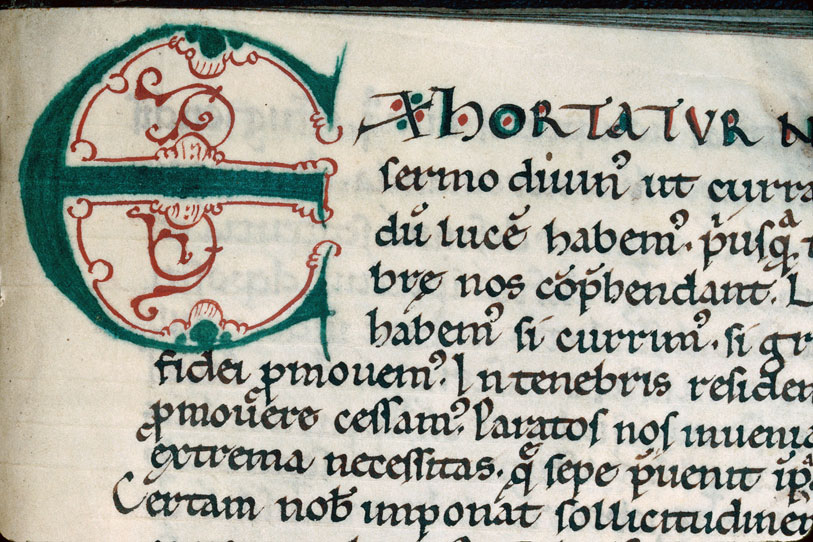 EXHORTATUR N
sermo diuinꝰ ut curra
dū lucē habemꝰ. p̄usqᷓ t
brę nos cōp̄hendant. L
habemꝰ si currimꝰ. si gr
fidei ꝓmouemꝰ. In tenebris residen
ꝓmouere cessamꝰ. Paratos nos inuenia
extrema necessitas. qᷓ sepe p̄uenit ip̄a
Certam nob̄ imponat sollicitudinem